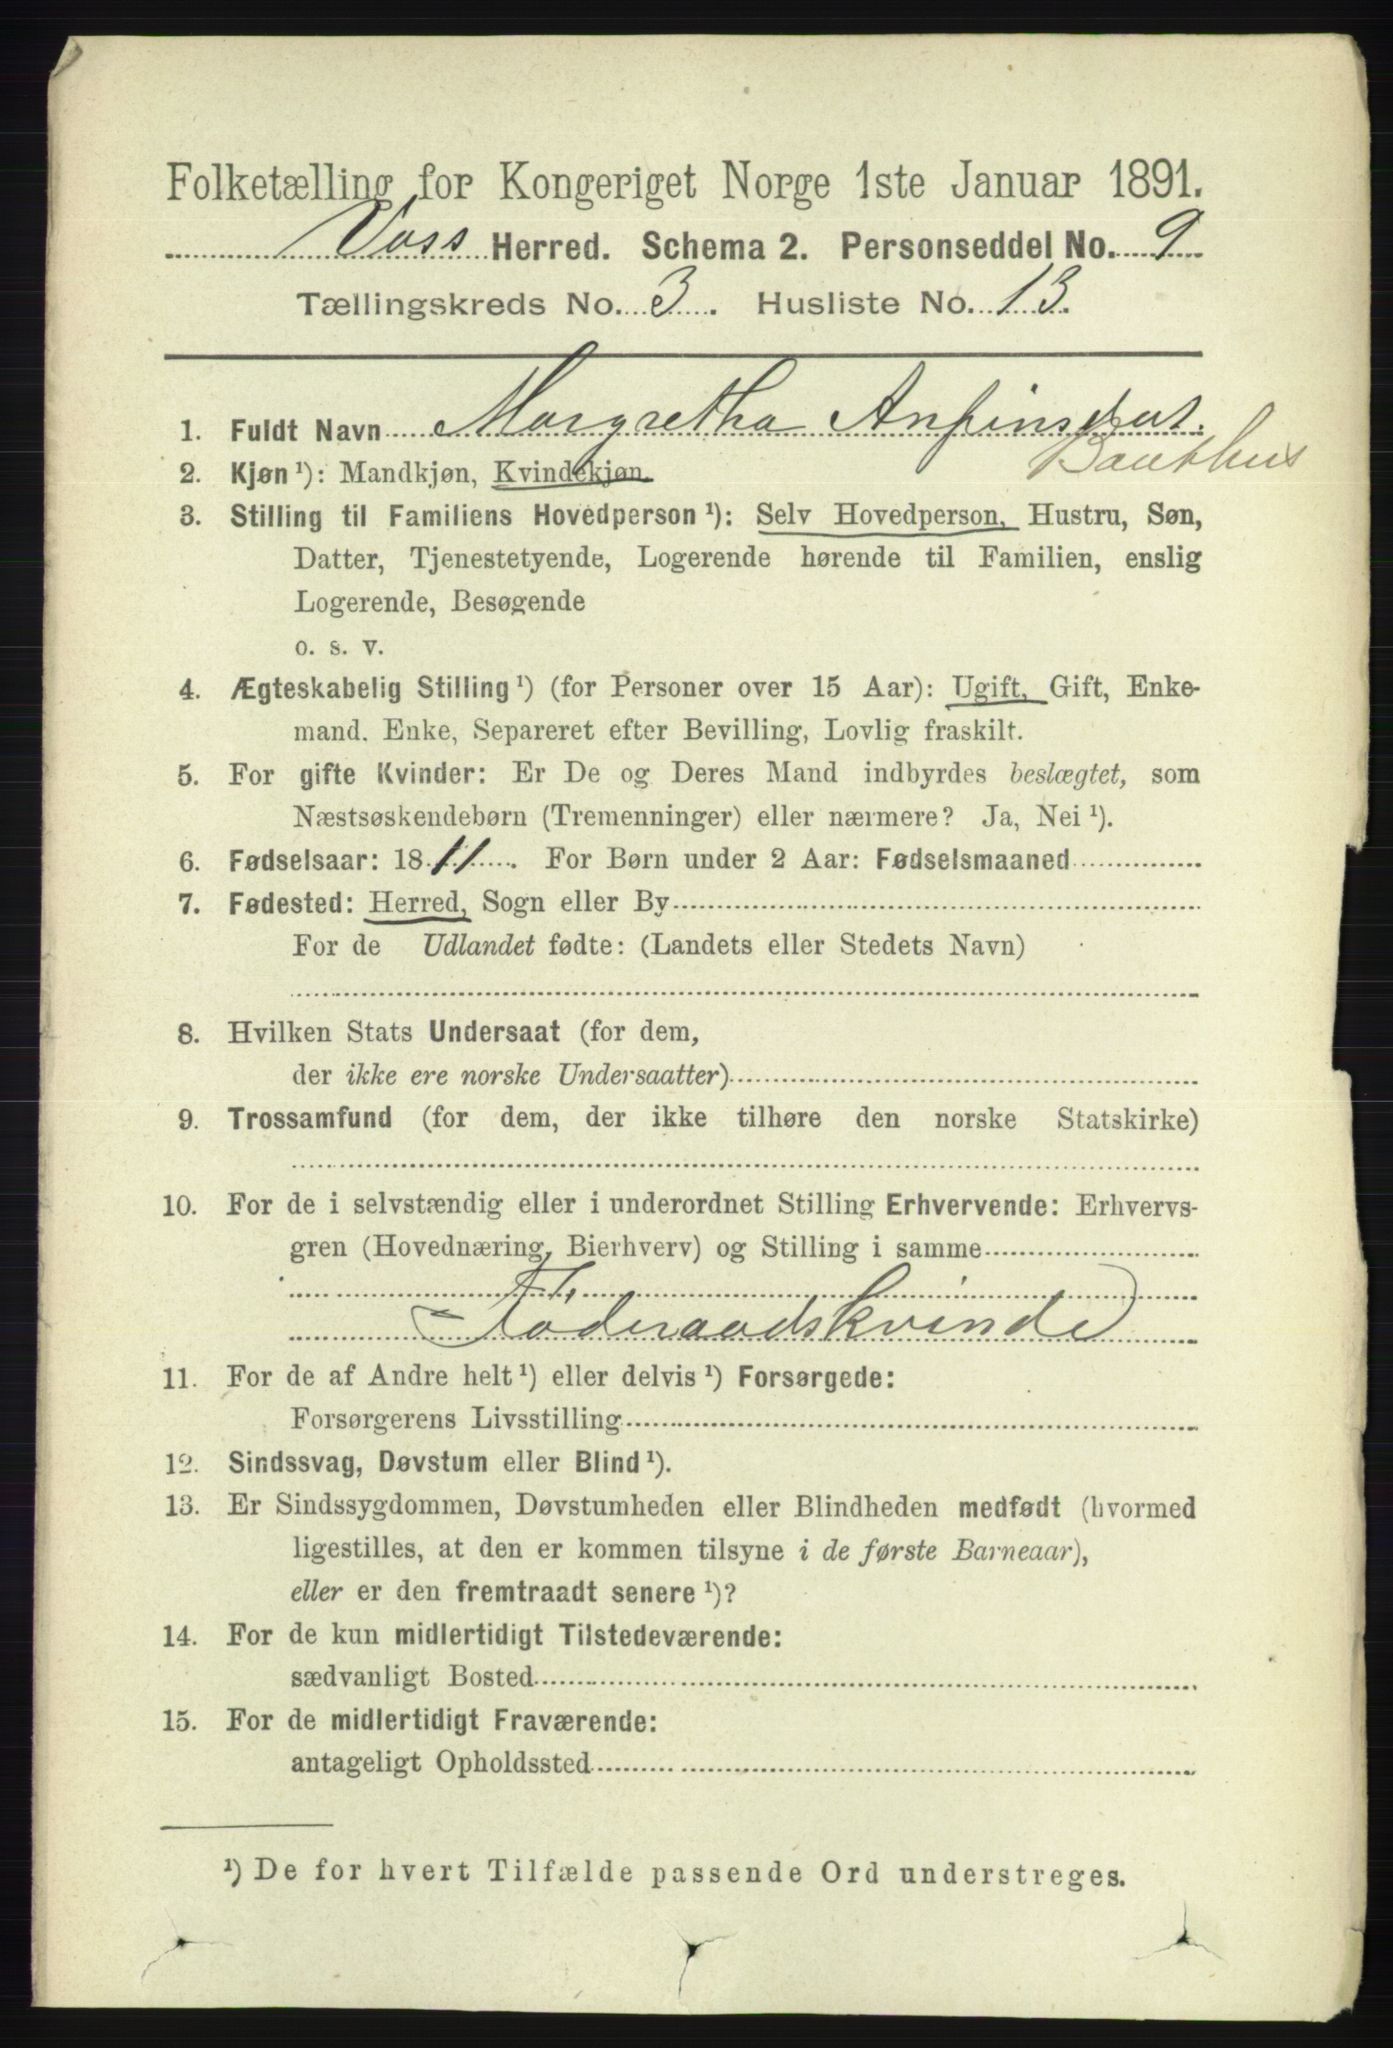 Folketælling for Kongeriget Norge 1ste Januar 1891.
Voss Herred. Schema 2. Personseddel No. 9
Tællingskreds No. 3. Husliste No. 13.
1. Fuldt Navn Margretha Anfinsdat.
2. Kjøn¹): Mandkjøn, Kvindekjøn.
3. Stilling til Familiens Hovedperson¹): Selv Hovedperson, Hustru, Søn,
Datter, Tjenestetyende, Logerende hørende til Familien, enslig
Logerende, Besøgende
o. s. v.
4. Ægteskabelig Stilling¹) (for Personer over 15 Aar): Ugift, Gift, Enke-
mand. Enke, Separeret efter Bevilling, Lovlig fraskilt.
5. For gifte Kvinder: Er De og Deres Mand indbyrdes beslægtet, som
Næstsøskendebørn (Tremenninger) eller nærmere? Ja, Nei¹).
6. Fødselsaar: 1811. For Børn under 2 Aar: Fødselsmaaned
7. Fødested: Herred, Sogn eller By
For de Udlandet fødte: (Landets eller Stedets Navn)
8. Hvilken Stats Undersaat (for dem,
der ikke ere norske Undersaatter)
9. Trossamfund (for dem, der ikke tilhøre den norske Statskirke)
10. For de i selvstændig eller i underordnet Stilling Erhvervende: Erhvervs-
gren (Hovednæring, Bierhverv) og Stilling i samme
Føderaadskvinde
11. For de af Andre helt¹) eller delvis¹) Forsørgede:
Forsørgerens Livsstilling
12. Sindssvag, Døvstum eller Blind¹).
13. Er Sindssygdommen, Døvstumheden eller Blindheden medfødt (hvormed
ligestilles, at den er kommen tilsyne i de første Barneaar),
eller er den fremtraadt senere¹)?
14. For de kun midlertidigt Tilstedeværende:
sædvanligt Bosted
15. For de midlertidigt Fraværende:
antageligt Opholdssted
¹) De for hvert Tilfælde passende Ord understreges.